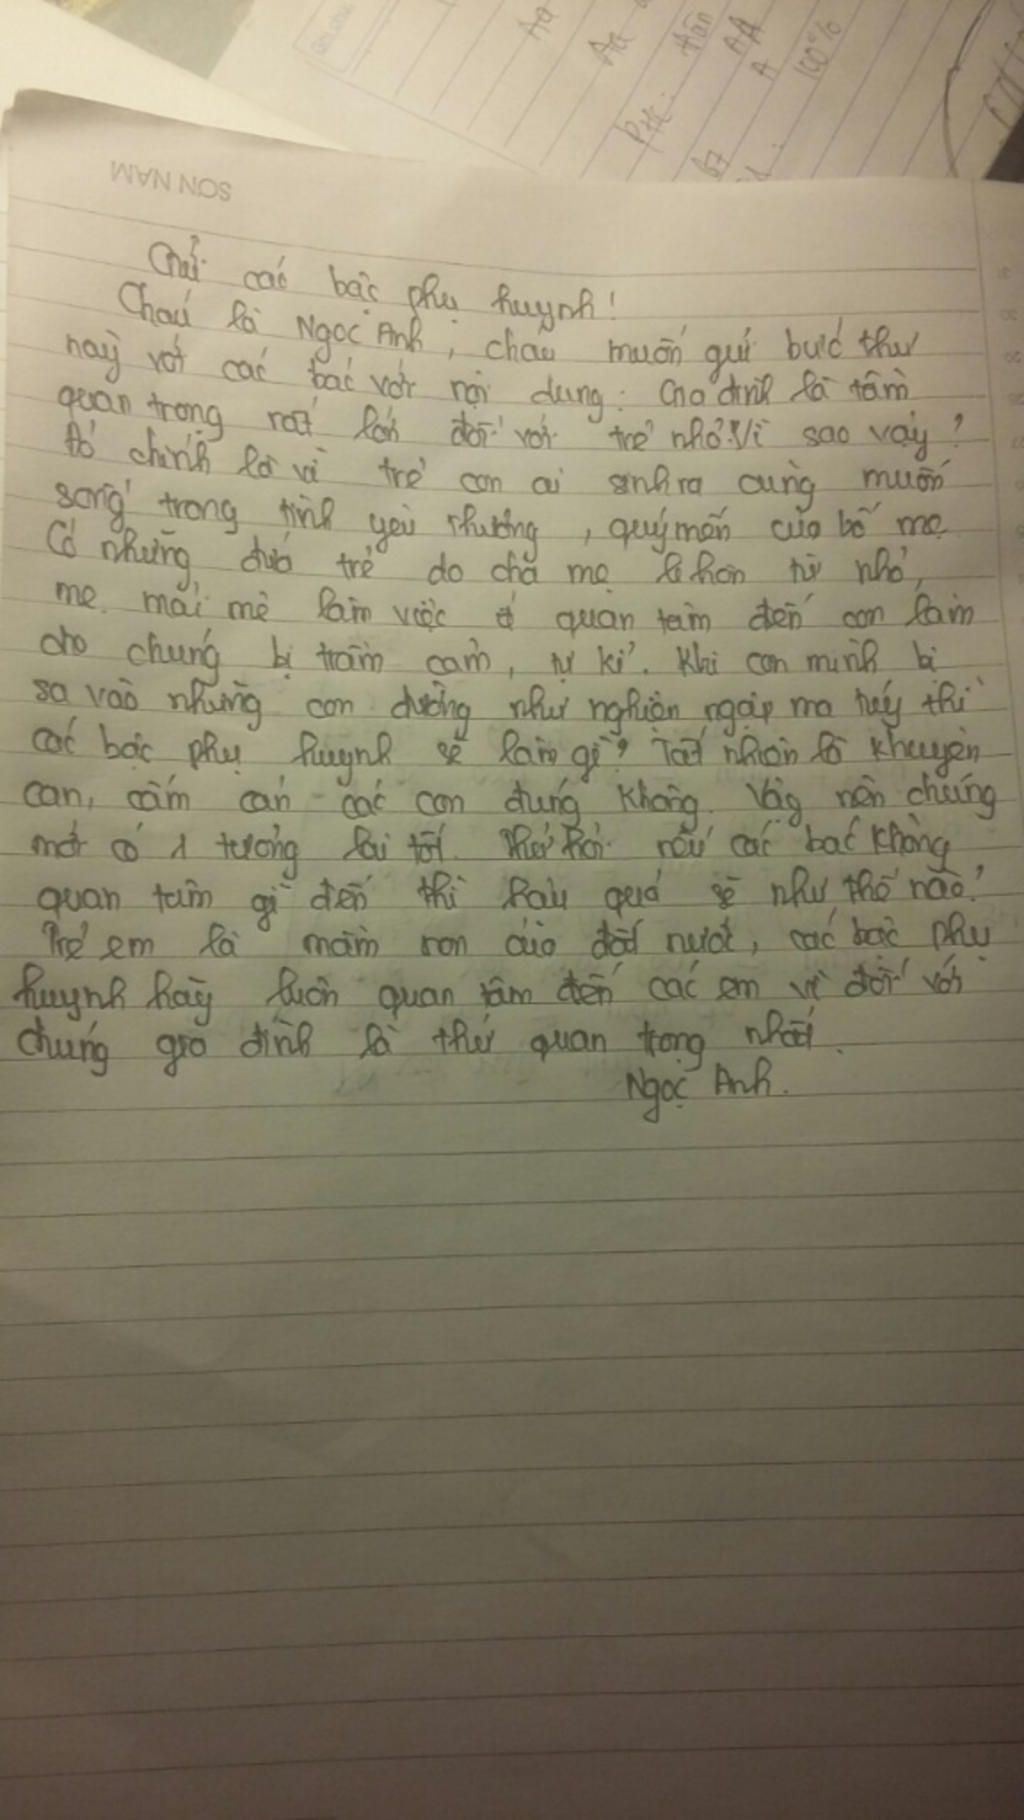 SON NAM
Aa
Aa
PHC:
đần
AA
A
100%
Gửi các bậc phụ huynh!
Cháu là Ngọc Anh, cháu muốn gửi bức thư
này với các bác với nội dung: Gia đình là tầm
quan trọng rất lớn đối với trẻ nhỏ. Vì sao vậy?
Đó chính là vì trẻ con ai sinh ra cũng muốn
sống trong tình yêu thương, quý mến của bố mẹ.
Có những đứa trẻ do cha mẹ li hôn từ nhỏ,
mẹ mải mê làm việc ít quan tâm đến con làm
cho chúng bị trầm cảm, tự kỉ. Khi con mình bị
sa vào những con đường như nghiện ngập ma túy thì
các bậc phụ huynh sẽ làm gì? Tất nhiên là khuyên
can, cấm cản các con đúng không. Vậy nên chúng
mới có 1 tương lai tốt. Thử hỏi nếu các bác không
quan tâm gì đến thì hậu quả sẽ như thế nào?
Trẻ em là mầm non của đất nước, các bậc phụ
huynh hãy luôn quan tâm đến các em vì đối với
chúng gia đình là thứ quan trọng nhất.
Ngọc Anh.